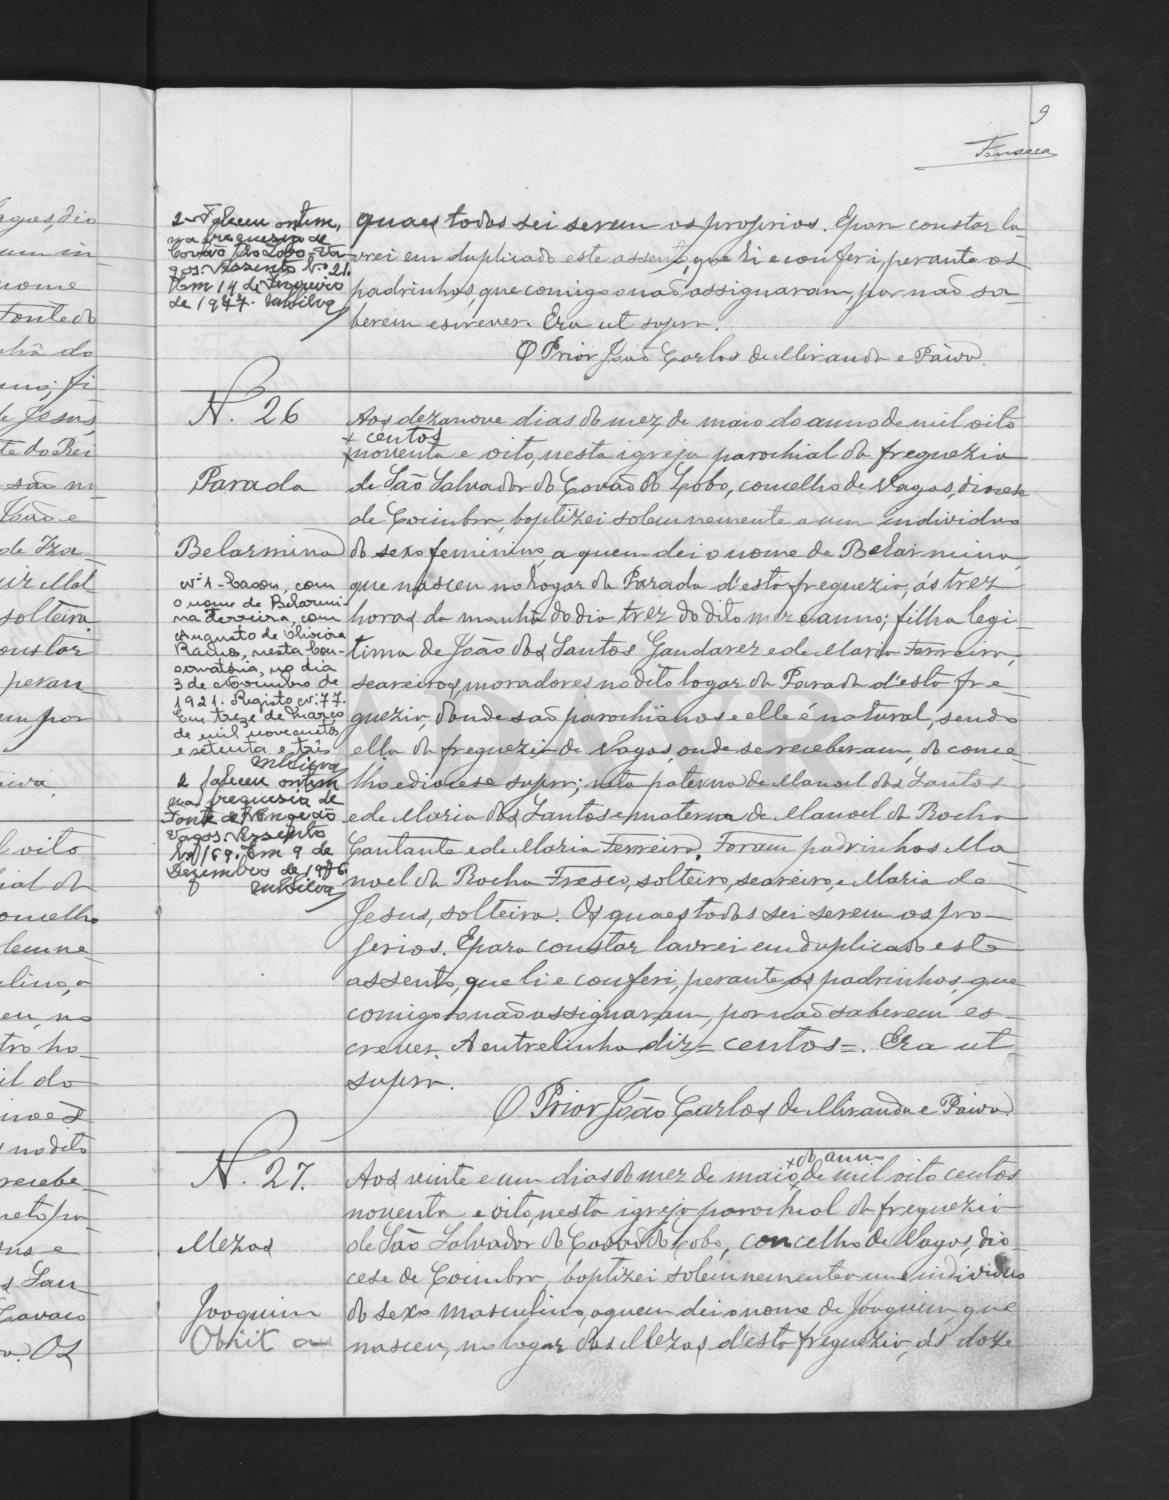 9
Fonseca
2 Faleceu ontem,
na freguesia de
Covão do Lobo - Va-
gos. Assento N.º 21.
Em 14 de
de 1977. MSilva
quaes todos sei serem os proprios. E para constar la-
vrei em duplicado este assento, que li e conferi, perante os
padrinhos, que comigo não assignaram, por não sa-
berem escrever. Era ut supra.
O Prior João Carlos de Miranda e Paiva.
N. 26
Parada
Belarmina
Nº 1 - Casou, com
o nome de Belarmi-
na Ferreira, com
Augusto de Oliveira
nesta Con-
servatória, no dia
3 de Novembro de
1921. Registo nº 77.
Em treze de Março
de mil novecentos
e setenta e três
MSilva
2 faleceu ontem
na freguesia de
Fonte de Angeão
Vagos. Assento
Nº 169. Em 9 de
Dezembro de 1976.
MSilva
Aos dezanove dias do mez de maio do anno de mil oito
× centos
× noventa e oito, nesta igreja parochial da freguezia
de São Salvador do Covão do Lobo, concelho de Vagos, diocese
de Coimbra, baptizei solemnemente a um individuo
do sexo feminino, a quem dei o nome de Belarmina,
que nasceu no logar da Parada d'esta freguezia, ás trez
horas da manhã do dia trez do dito mez e anno; filha legi-
tima de João dos Santos Gandarez e de Maria Ferreira,
seareiros, moradores no dito logar da Parada d'esta fre-
guezia, donde são parochianos e elle é natural, sendo
ella da freguezia de Vagos, onde se receberam, do conce-
lho e diocese supra; neta paterna de Manoel dos Santos
e de Maria dos Santos e materna de Manoel da Rocha
Cantante e de Maria Ferreira. Foram padrinhos Ma-
noel da Rocha Fresco, solteiro, seareiro, e Maria de
Jesus, solteira. Os quaes todos sei serem os pro-
prios. E para constar lavrei em duplicado este
assento, que li e conferi, perante os padrinhos, que
comigo não assignaram, por não saberem es-
crever. A entrelinha diz = centos =. Era ut
supra.
O Prior João Carlos de Miranda e Paiva
N. 27.
Mezas
Joaquim
Obiit a
× do anno
Aos vinte e um dias do mez de maio × de mil oito centos
noventa e oito, nesta igreja parochial da freguezia
de São Salvador do Covão do Lobo, concelho de Vagos, dio-
cese de Coimbra, baptizei solemnemente a um individuo
do sexo masculino, a quem dei o nome de Joaquim, que
nasceu, no logar das Mezas d'esta freguezia, ás doze